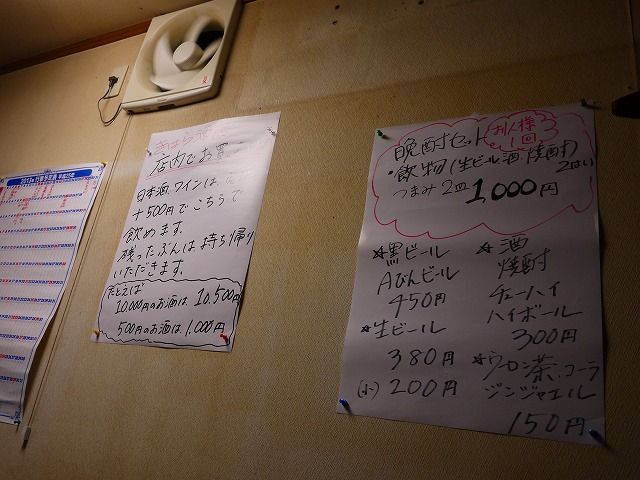 2013年 行事予定表 平成25年
店内でお買
日本酒、ワインは、
+500円でこちらで
飲めます。
残ったぶんは持ち帰り
いただきます。
たとえば
10,000円のお酒は 10,500円
500円のお酒は 1,000円
晩酌セット お1人様 1回
・飲物(生ビール 酒 焼酎) 2はい
つまみ2皿 1,000円
☆黒ビール
Aびんビール
450円
☆生ビール
380円
(小) 200円
☆酒
焼酎
チューハイ
ハイボール
300円
☆ウーロン茶.コーラ
ジンジャエール
150円